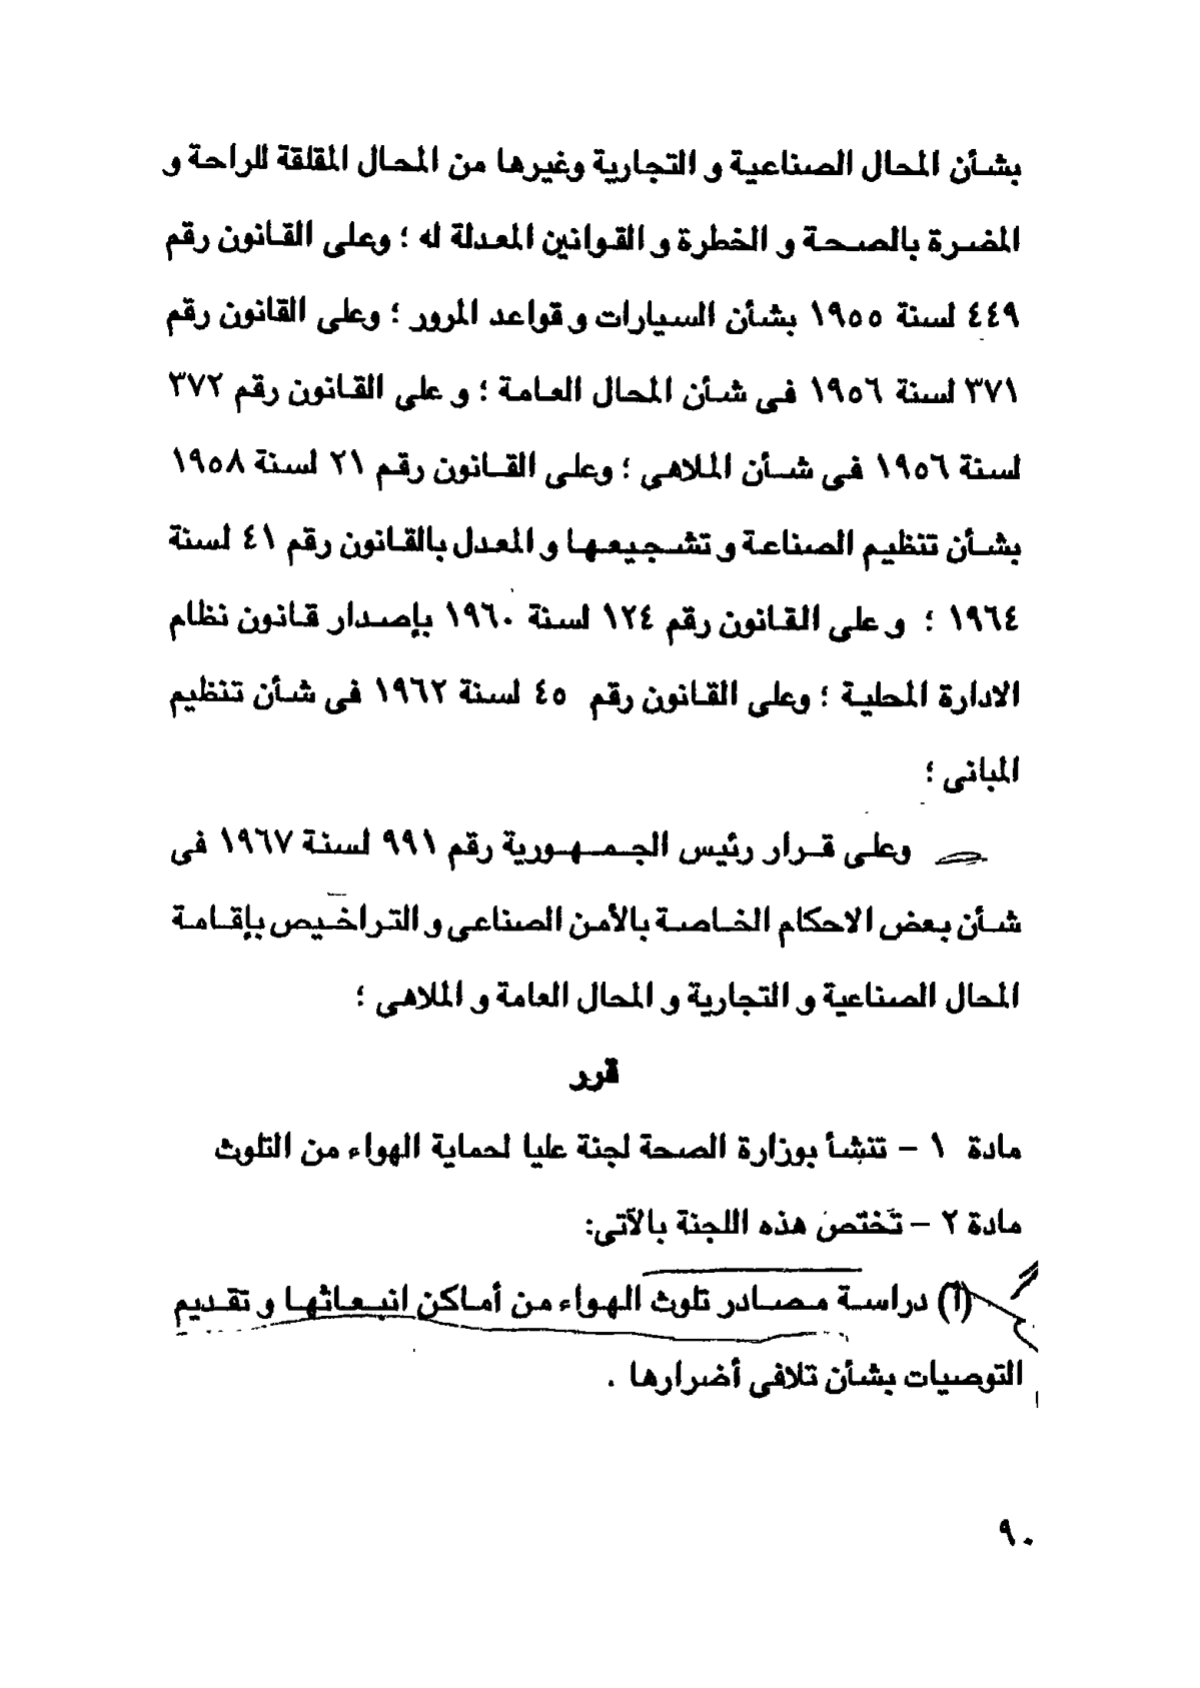 بشأن المحال الصناعية و التجارية وغيرها من المحال المقلقة للراحة و
المضرة بالصحة و الخطرة و القوانين المعدلة له ؛ وعلى القانون رقم
٤٤٩ لسنة ١٩٥٥ بشأن السيارات و قواعد المرور ؛ وعلى القانون رقم
٣٧١ لسنة ١٩٥٦ فى شأن المحال العامة ؛ و على القانون رقم ٣٧٢
لسنة ١٩٥٦ فى شأن الملاهى ؛ وعلى القانون رقم ٢١ لسنة ١٩٥٨
بشأن تنظيم الصناعة و تشجيعها و المعدل بالقانون رقم ٤١ لسنة
١٩٦٤ ؛ و على القانون رقم ١٢٤ لسنة ١٩٦٠ بإصدار قانون نظام
الادارة المحلية ؛ وعلى القانون رقم ٤٥ لسنة ١٩٦٢ فى شأن تنظيم
المبانى ؛
وعلى قرار رئيس الجمهورية رقم ٩٩١ لسنة ١٩٦٧ فى
شأن بعض الاحكام الخاصة بالأمن الصناعى و التراخيص بإقامة
المحال الصناعية و التجارية و المحال العامة و الملاهى ؛
قرر
مادة ١ – تنشأ بوزارة الصحة لجنة عليا لحماية الهواء من التلوث
مادة ٢ – تختص هذه اللجنة بالآتى:
(أ) دراسة مصادر تلوث الهواء من أماكن انبعاثها و تقديم
التوصيات بشأن تلافى أضرارها .
٩٠